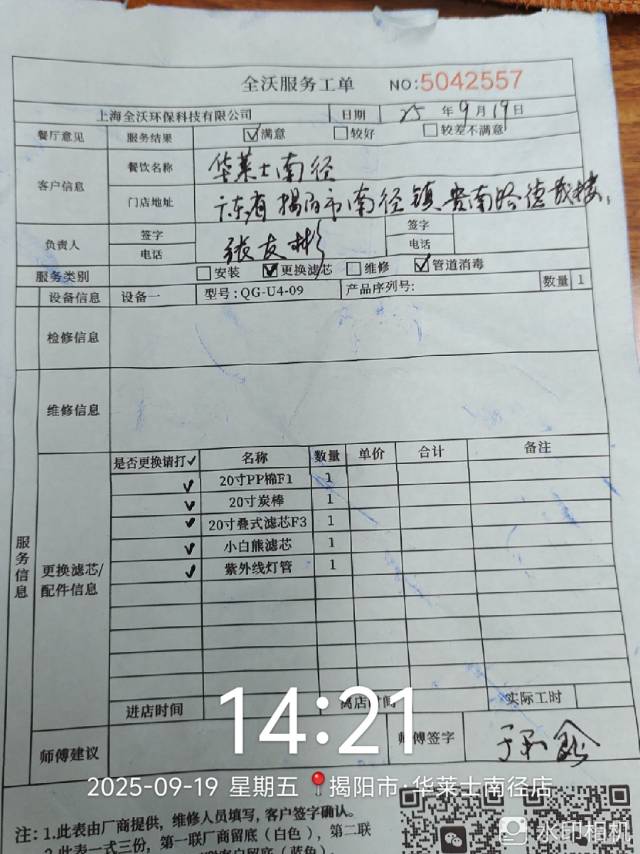 全沃服务工单 NO:5042557
上海全沃环保科技有限公司 日期 25年9月19日
餐厅意见 服务结果 ☑满意 □较好 □较差不满意
客户信息 餐饮名称 华莱士南径
门店地址 广东省揭阳市南径镇贵南路德成楼
负责人 签字 张友彬 签字
电话 电话
服务类别 □安装 ☑更换滤芯 □维修 ☑管道消毒
设备信息 设备一 型号:QG-U4-09 产品序列号: 数量 1
检修信息
维修信息
服务信息
更换滤芯/配件信息
是否更换请打✓ 名称 数量 单价 合计 备注
✓ 20寸PP棉F1 1
✓ 20寸炭棒 1
✓ 20寸叠式滤芯F3 1
✓ 小白熊滤芯 1
✓ 紫外线灯管 1
进店时间 离店时间 实际工时
14:21
师傅建议 师傅签字
2025-09-19 星期五 揭阳市·华莱士南径店
注：1.此表由厂商提供，维修人员填写，客户签字确认。
2.此表一式三份，第一联厂商留底（白色），第二联
水印相机